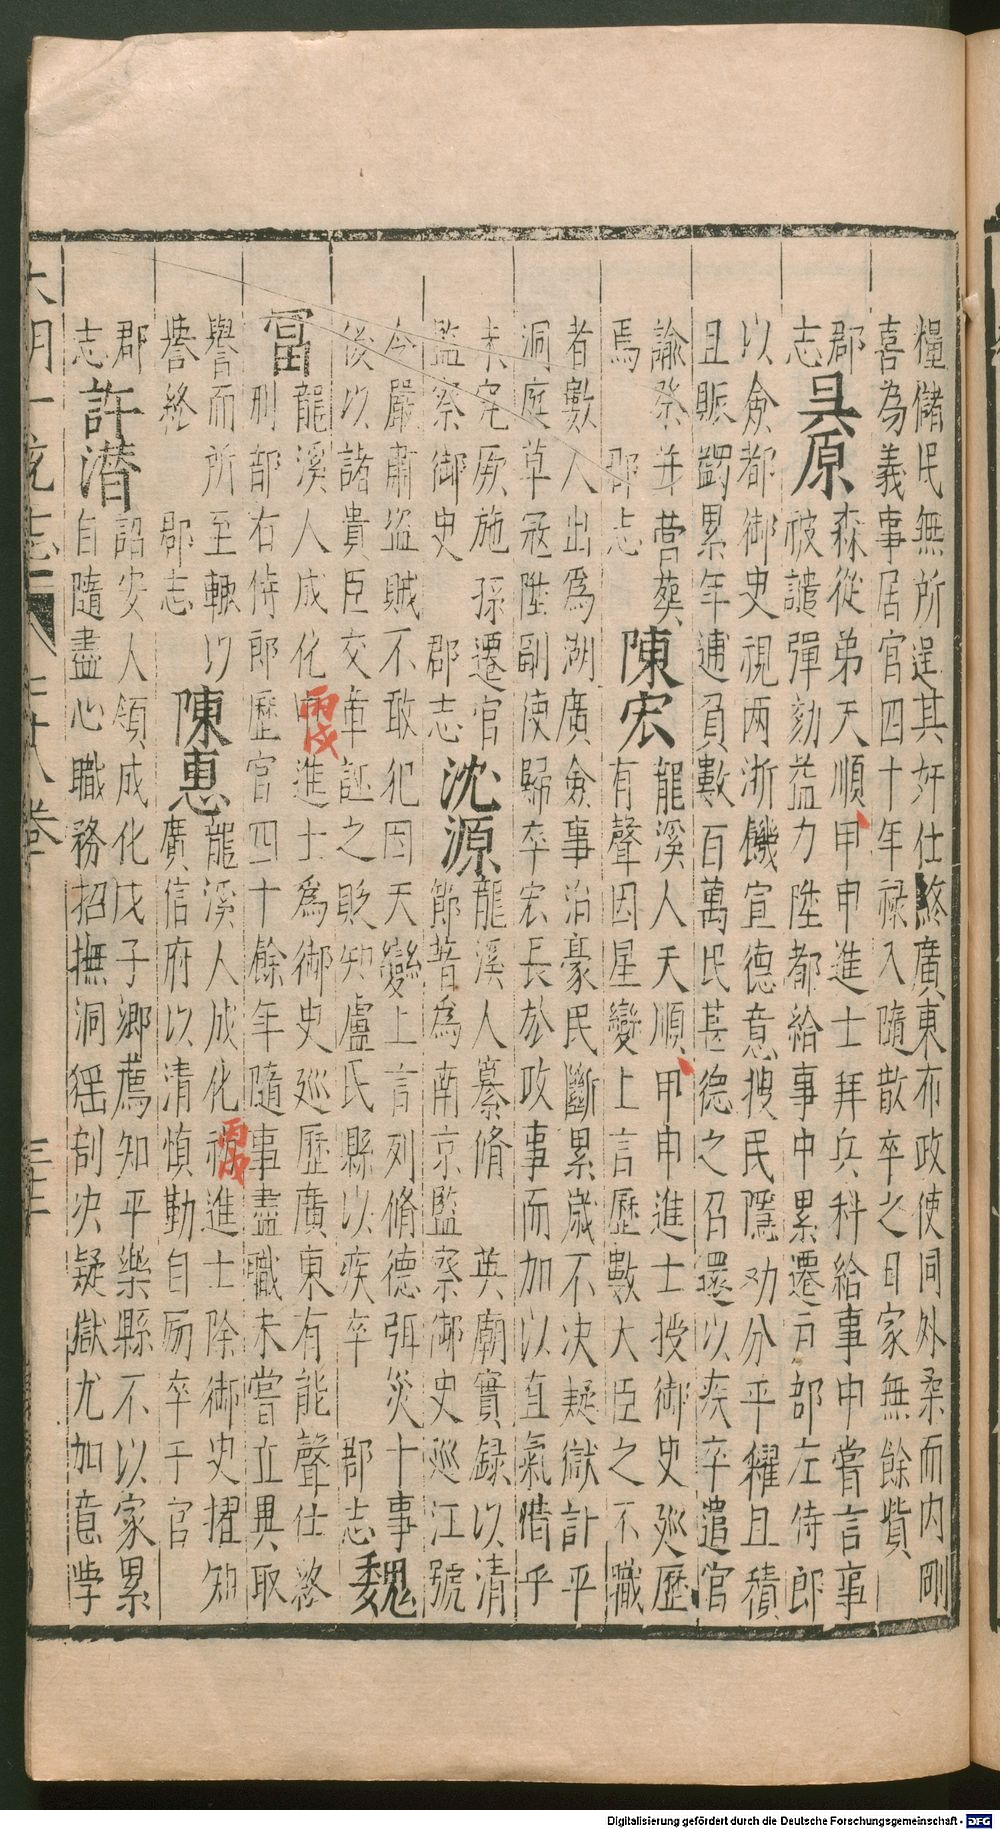 糧儲民無所逞其奸仕終廣東布政使同外柔而内剛
喜為義事居官四十年祿入隨散卒之日家無餘貲
郡志
吳原
森從弟天順甲申進士拜兵科給事中嘗言事
被譴彈劾益力陞都給事中累遷户部左侍郎
以僉都御史視兩浙饑宣德意搜民隱劝分平糴且積
且賑蠲累年逋負數百萬民甚德之召還以疾卒遣官
諭祭并營葬
焉 郡志
陳宏
龍溪人天順甲申進士授御史廵歷
有聲因星變上言歷數大臣之不職
者數人出為湖廣僉事治豪民斷累嵗不决疑獄計平
洞庭草冦陞副使歸卒宏長於政事而加以直氣惜乎
未究厥施 孫遷官
監察御史 郡志
沈源
龍溪人纂脩 英廟實録以清
節著為南京監察御史廵江號
令嚴肅盜賊不敢犯因天變上言列脩德弭災十事
後以諸貴臣交章詆之貶知盧氏縣以疾卒 郡志
魏
富
龍溪人成化 丙戌 進士為御史廵歷廣東有能聲仕終
刑部右侍郎歷官四十餘年隨事盡職未嘗立異取
譽而所至輒以
譽終 郡志
陳惠
龍溪人成化 丙戌 進士除御史擢知
廣信府以清慎勤自厲卒于官
郡
志
許潜
詔安人領成化戊子鄉薦知平樂縣不以家累
自隨盡心職務招撫洞猺剖决疑獄尤加意學
大明一統志 七十八卷 三十二
Digitalisierung gefördert durch die Deutsche Forschungsgemeinschaft - DFG